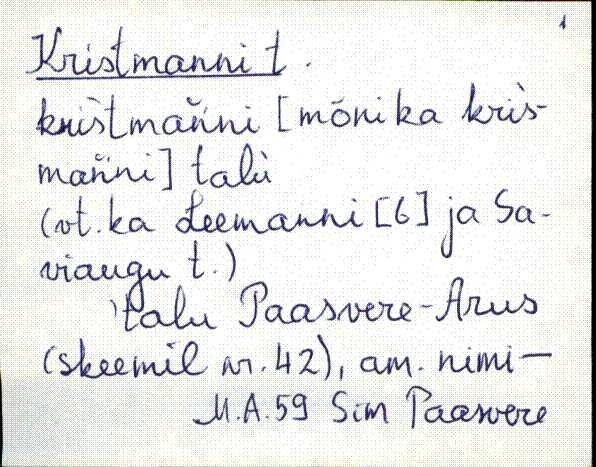 1
Kristmanni t.
kris̀tmañ̆ni [mõnika kris̀-
mañ̆ni] talù
(vt. ka Leemanni [6] ja Sa-
viaugu t.)
talu Paasvere-Arus
(skeemil nr. 42), am. nimi —
M.A. 59 Sim Paasvere